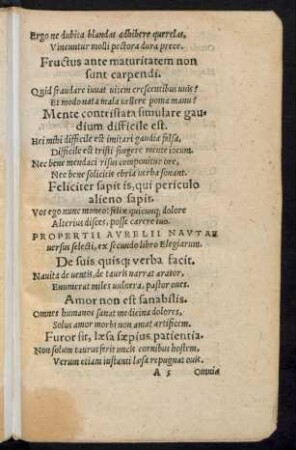 Ergo ne dubita blandas adhibere querelas,
Vincuntur molli pectora dura prece.
Fructus ante maturitatem non
sunt carpendi.
Quid fraudare iuuat uitem crescentibus uuis?
Et modo nata mala uellere poma manu?
Mente contristata simulare gau-
dium difficile est.
Hei mihi difficile est imitari gaudia falsa,
Difficile est tristi fingere mente iocum.
Nec bene mendaci risus componitur ore,
Nec bene solicitis ebria uerba sonant.
Feliciter sapit is, qui periculo
alieno sapis.
Vos ego nunc moneo: felix quicunq; dolore
Alterius disces, posse carere suo.
PROPERTII AVRELII NAVTAE
uersus selecti, ex secundo libro Elegiarum.
De suis quisq; verba facit.
Nauita de uentis, de tauris narrat arator,
Enumerat miles uulnera, pastor oues.
Amor non est sanabilis.
Omnes humanos sanat medicina dolores,
Solus amor morbi non amat artificem.
Furor fit, læsa sæpius patientia.
Non solum taurus ferit uncis cornibus hostem,
Verum etiam instanti læsa repugnat ouis.
A 5 Omnia